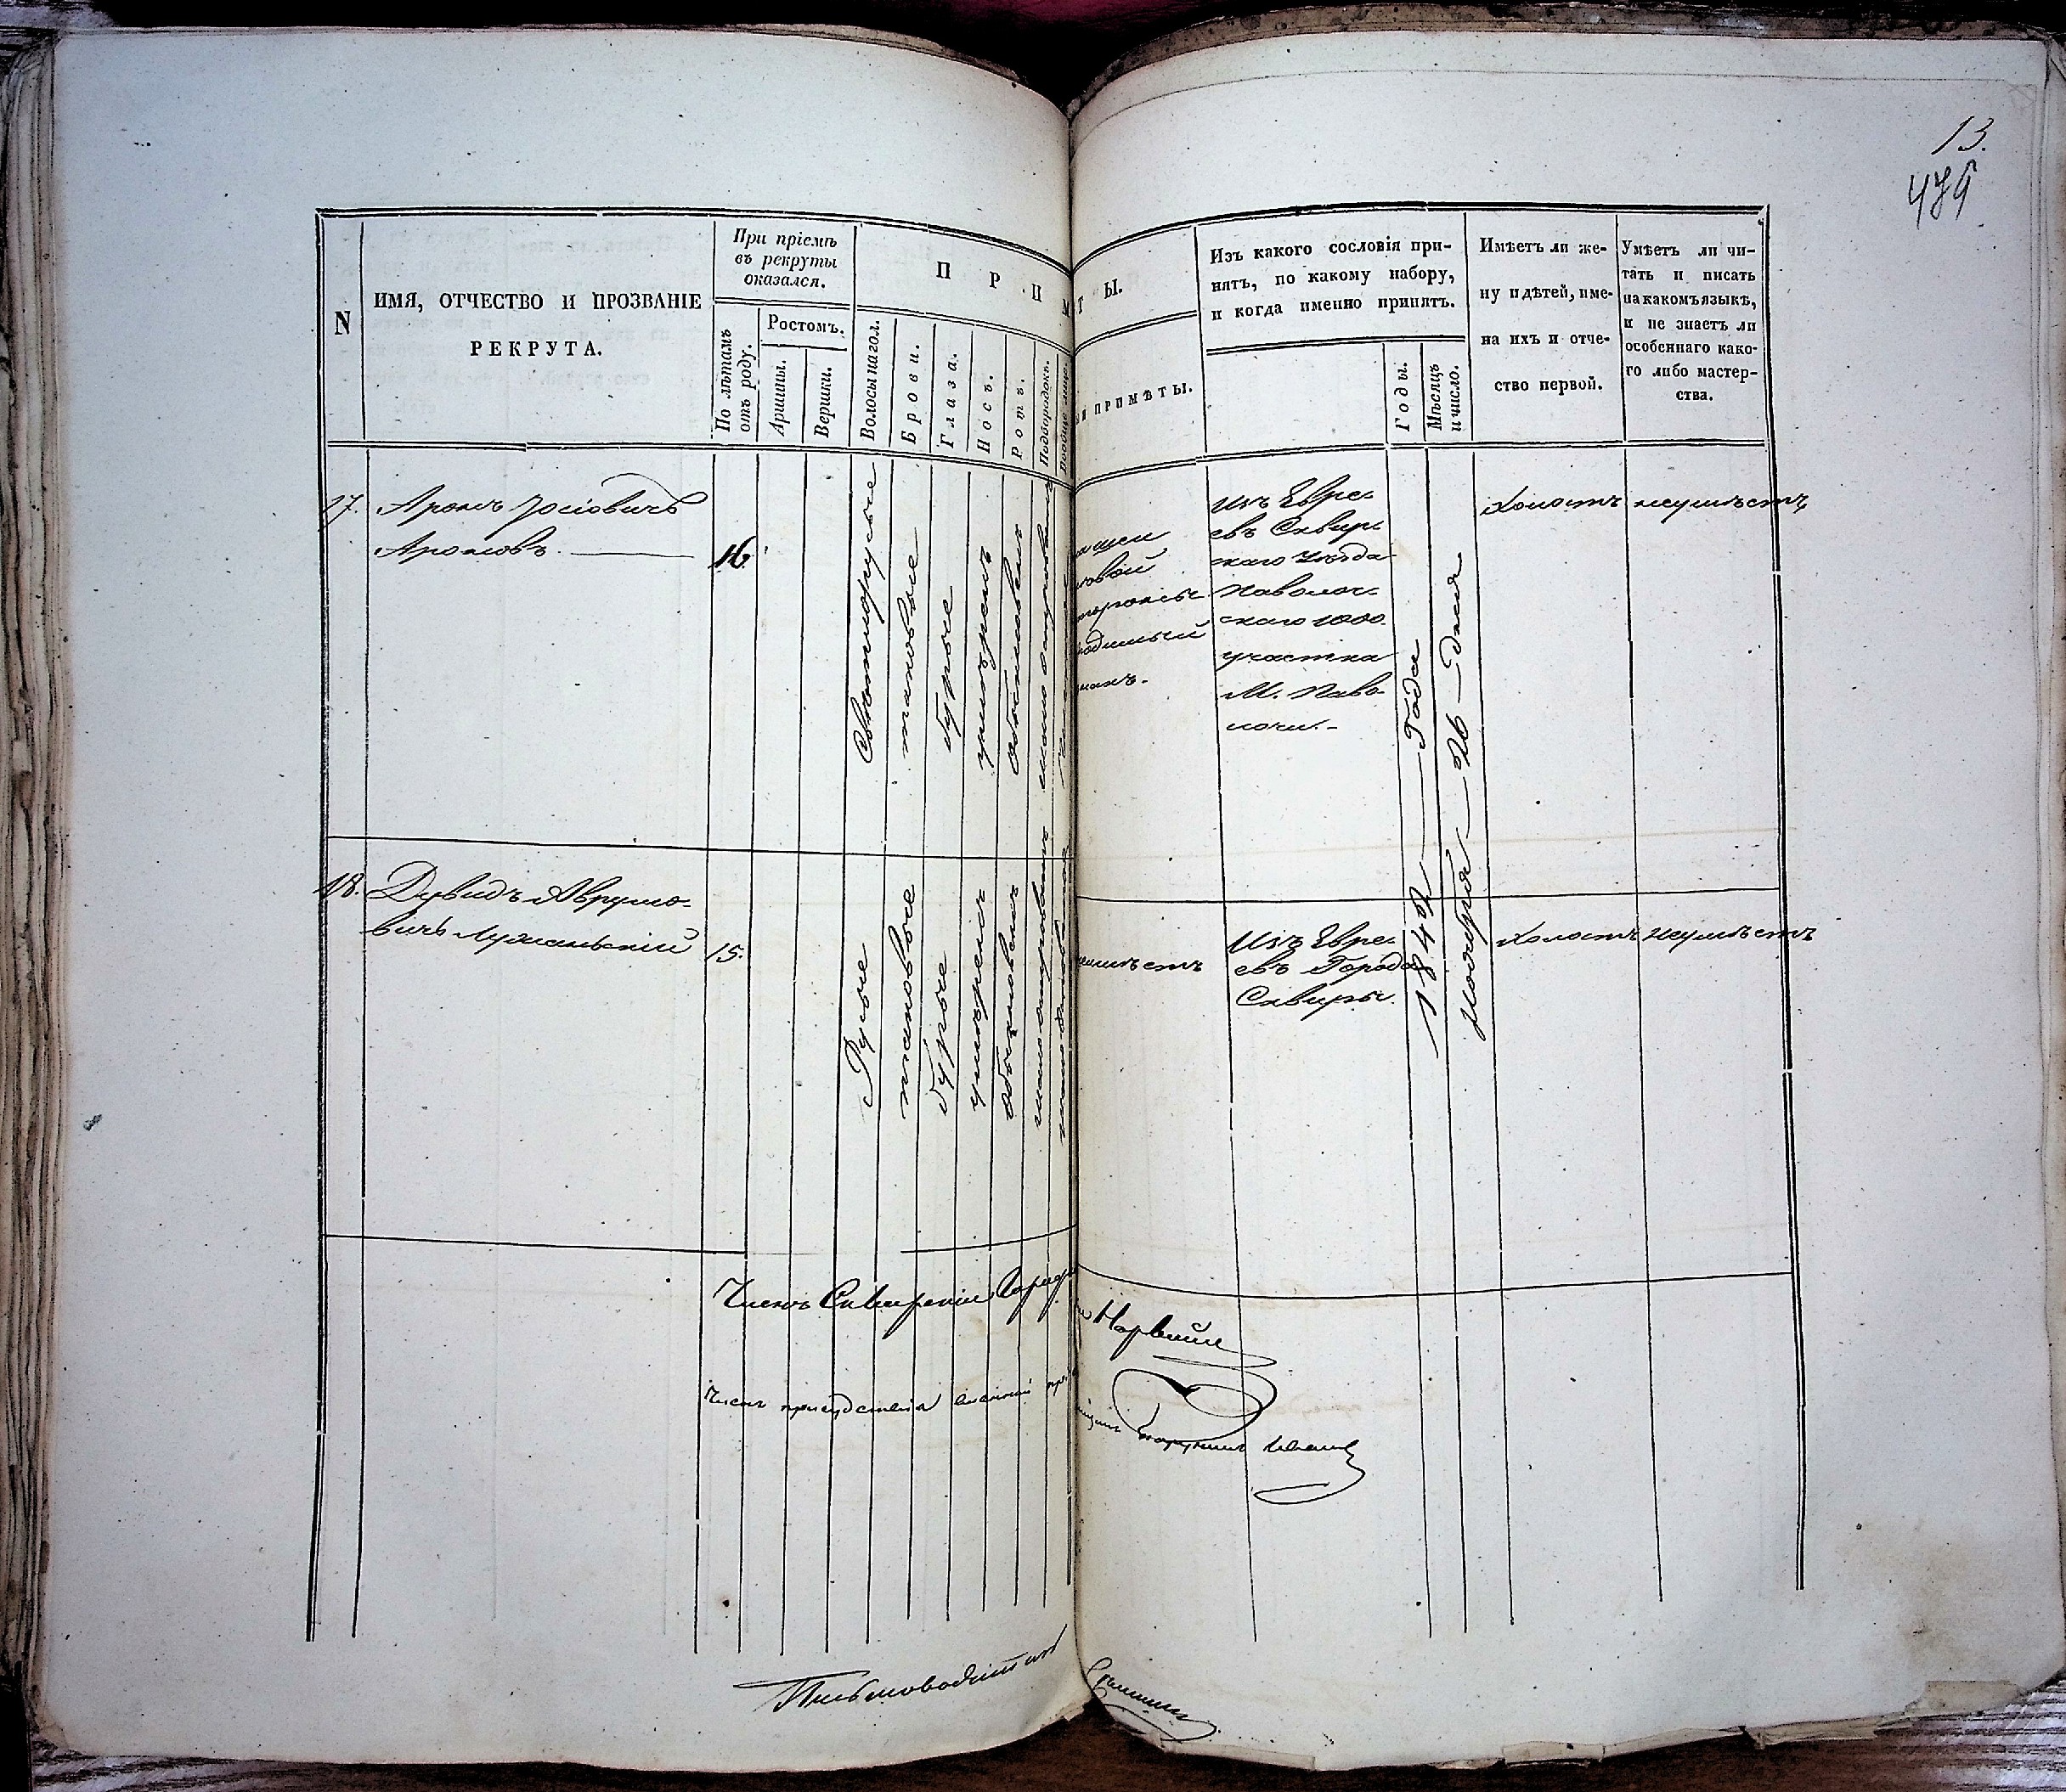 13.
479
N
ИМЯ, ОТЧЕСТВО И ПРОЗВАНІЕ
РЕКРУТА.
При пріемѣ
въ рекруты
оказался.
По лѣтамъ
отъ роду.
Ростомъ.
Аршины.
Вершки.
П Р И М Ѣ Т Ы.
Волосы на гол.
Брови.
Глаза.
Носъ.
Ротъ.
Подбородокъ.
Вообще лице.
ПРИМѢТЫ.
Изъ какого сословія при-
нятъ, по какому набору,
и когда именно принятъ.
Годы.
Мѣсяцъ
и число.
Имѣетъ ли же-
ну и дѣтей, име-
на ихъ и отче-
ство первой.
Умѣетъ ли чи-
тать и писать
на какомъ языкѣ,
и не знаетъ ли
особеннаго како-
го либо мастер-
ства.
17.
Аронъ Іосіовичь
Ароновъ.
16.
Свѣтлорусые
таковые
бурые
умѣренъ
обыкновенъ
Изъ Евре-
евъ Сквир-
скаго Уѣзда
Паволоч-
скаго 1000.
участка
М. Паво-
лочи.-
1842 Года
Ноября 26 дня
Холостъ
неумѣетъ
18.
Дувидъ Аврумо-
вичь Лужанскій
15.
Русые
таковые
бурые
умѣренъ
обыкновенъ
неимѣетъ
Изъ Евре-
евъ Города
Сквиры.
Холостъ
неумѣетъ
Членъ Сквирскій
Членъ присудствія
Письмоводитель